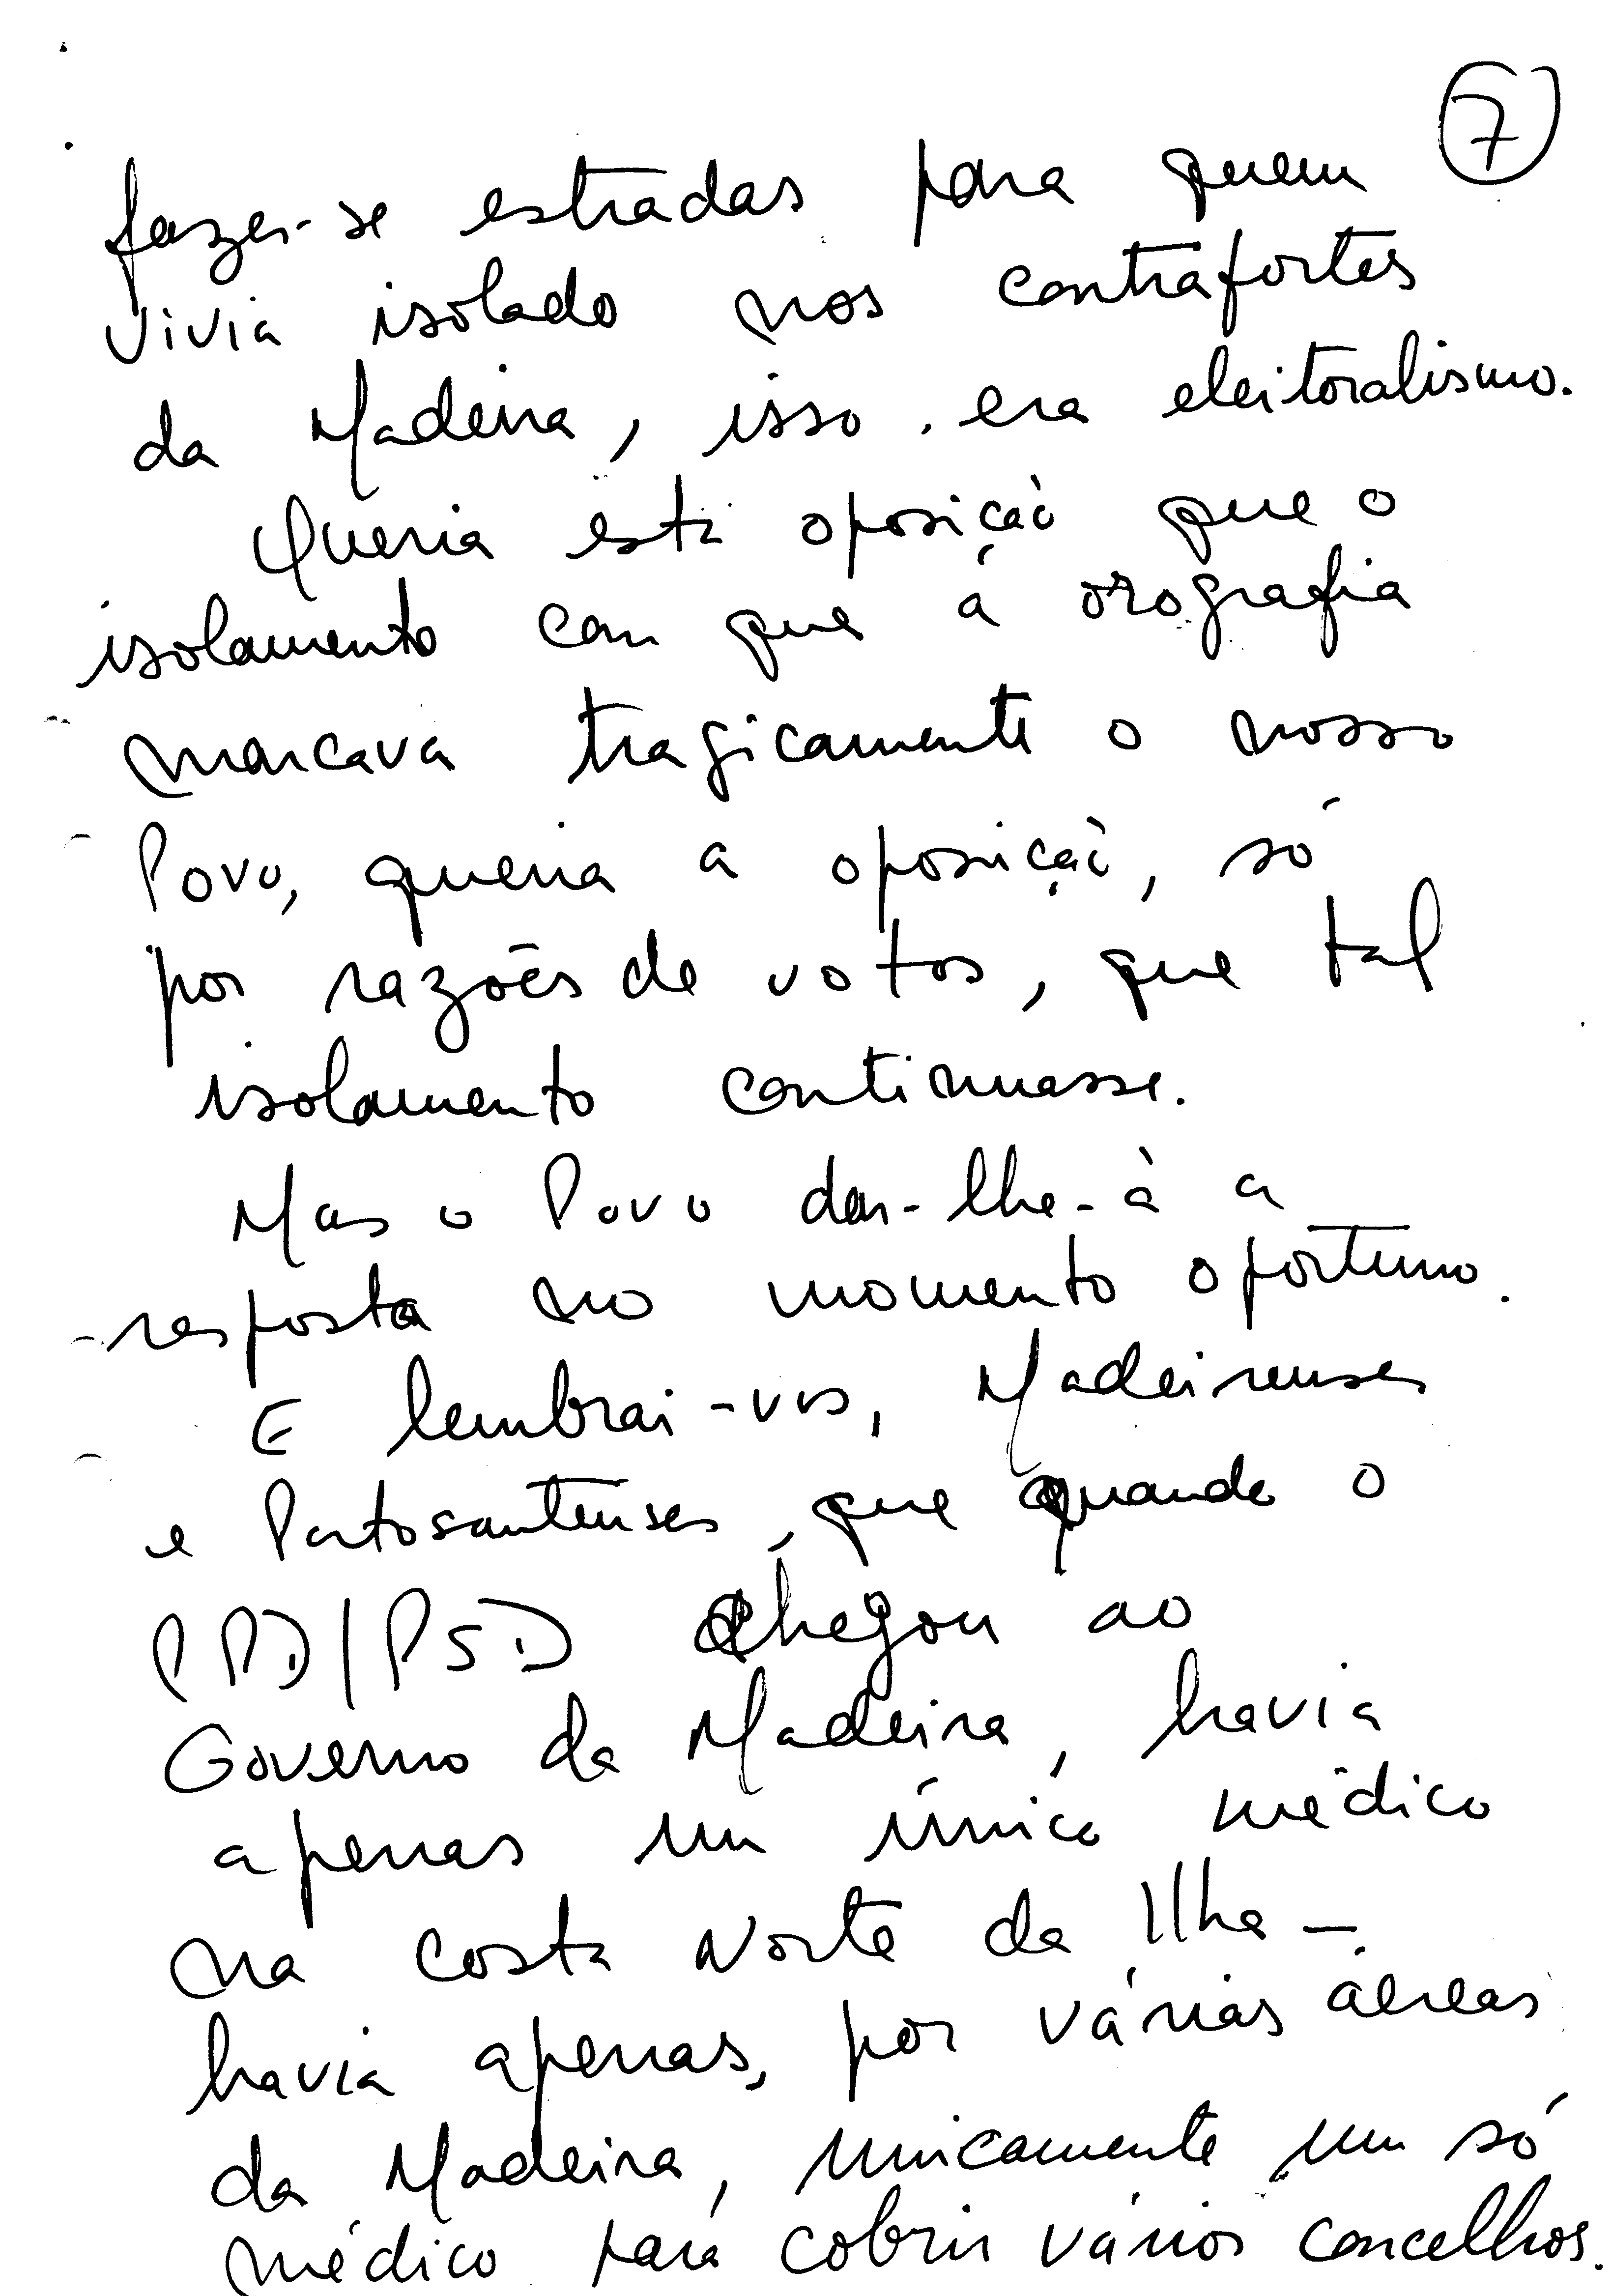 7
fazer-se estradas para quem
vivia isolado nos contrafortes
da Madeira, isso era eleitoralismo.
Queria esta oposição que o
isolamento com que a orografia
marcava tragicamente o nosso
Povo, queria a oposição, só
por razões de votos, que tal
isolamento continuasse.
Mas o Povo dar-lhe-à a
resposta no momento oportuno.
E lembrai-vos, Madeirenses
e Portosantenses, que quando o
PPD/PSD chegou ao
Governo da Madeira, havia
apenas um único médico
na costa Norte da Ilha –
havia apenas, por várias áereas
da Madeira, unicamente um só
médico para cobrir vários concelhos.